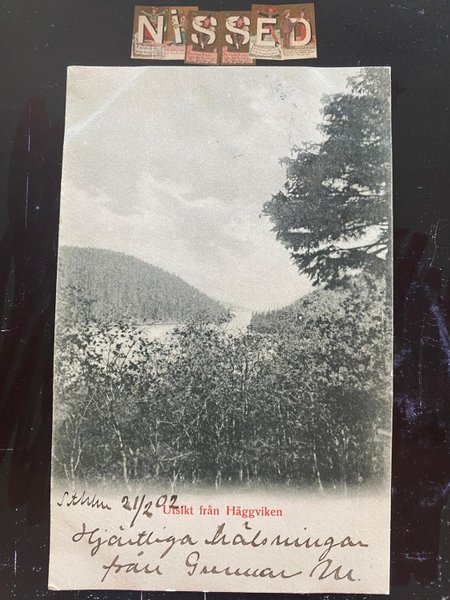 NiSSED
Sthlm 21/2 02
Utsikt från Häggviken
Hjärtliga hälsningar
från Gunnar M.